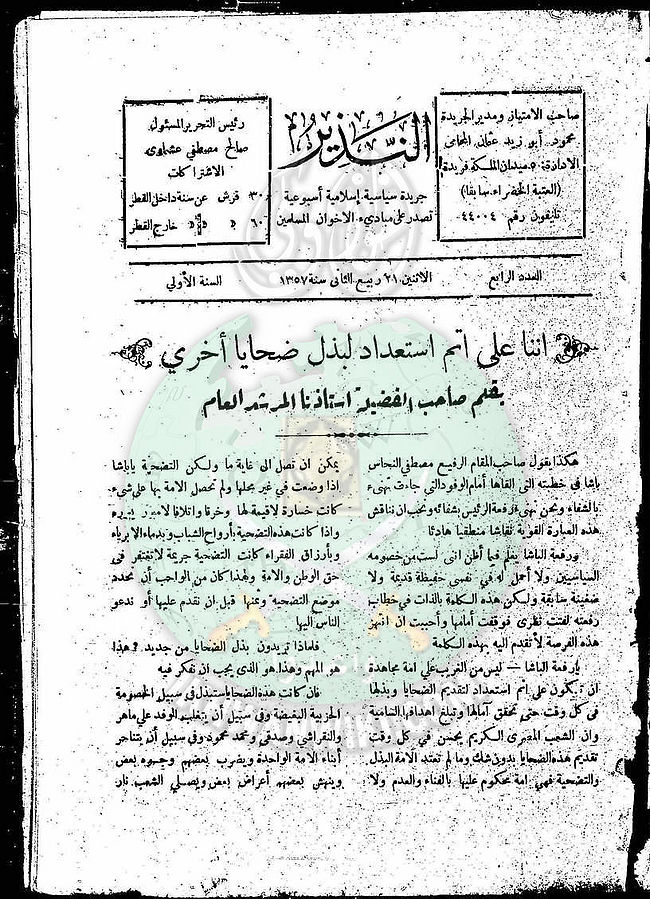 صاحب الامتياز ومدير الجريدة
محمود أبو زيد عثمان المحامى
الادارة: ٥ ميدان الملكة فريدة
(العتبة الخضراء سابقا)
تليفون رقم ٤٤٠٠٤
النذير
جريدة سياسية إسلامية أسبوعية
تصدر على مبادىء الاخوان المسلمين
رئيس التحرير المسئول
صالح مصطفى عشماوى
الاشتراكات
٣٠ قرش عن سنة داخل القطر
٦٠ » » » خارج القطر
العدد الرابع
الاثنين ٢١ ربيع الثانى سنة ١٣٥٧
السنة الأولى
اننا على اتم استعداد لبذل ضحايا أخرى
بقلم صاحب الفضيلة استاذنا المرشد العام
هكذا يقول صاحب المقام الرفيع مصطفى النحاس
باشا فى خطبته التى القاها أمام الوفود التى جاءت تهنىء
بالشفاء ونحن نهنىء رفعة الرئيس بشفائه ونحب ان نناقش
هذه العبارة القوية نقاشا منطقيا هادئا
ورفعة الباشا يعلم فيما أظن انى لست من خصومه
السياسيين ولا أحمل له فى نفسى حفيظة قديمة ولا
ضغينة سابقة ولكن هذه الكلمة بالذات فى خطاب
رفعته لفتت نظرى فوقفت أمامها وأحببت ان انتهز
هذه الفرصة لأتقدم اليه بهذه الكلمة
يا رفعة الباشا — ليس من الغريب على امة مجاهدة
ان تكون على اتم استعداد لتقديم الضحايا وبذلها
فى كل وقت حتى تحقق آمالها وتبلغ اهدافها السامية
وان الشعب المصرى الكريم يحسن فى كل وقت
تقديم هذه الضحايا بدون شك وما لم تعتد الامة البذل
والتضحية فهى امة محكوم عليها بالفناء والعدم ولا
يمكن ان تصل الى غاية ما ولكن التضحية ياباشا
اذا وضعت فى غير محلها ولم تحصل الامة بها على شىء
كانت خسارة لا قيمة لها وخرقا واتلافا لامور
واذا كانت هذه التضحية بأرواح الشباب وبدماء الابرياء
وبأرزاق الفقراء كانت التضحية جريمة لا تغتفر فى
حق الوطن والامة ولهذا كان من الواجب أن نحدد
موضع التضحية وثمنها قبل ان نقدم عليها أو ندعو
الناس اليها
فلماذا تريدون بذل الضحايا من جديد ؟ هذا
هو المهم وهذا هو الذى يجب ان نفكر فيه
فان كانت هذه الضحايا ستبذل فى سبيل الخصومة
الحزبية البغيضة وفى سبيل أن يتغلب الوفد على ماهر
والنقراشى وصدقى ومحمد محمود وفى سبيل أن يتناحر
أبناء الامة الواحدة ويضرب بعضهم وجوه بعض
وينهش بعضهم أعراض بعض ويصطلى الشعب نار